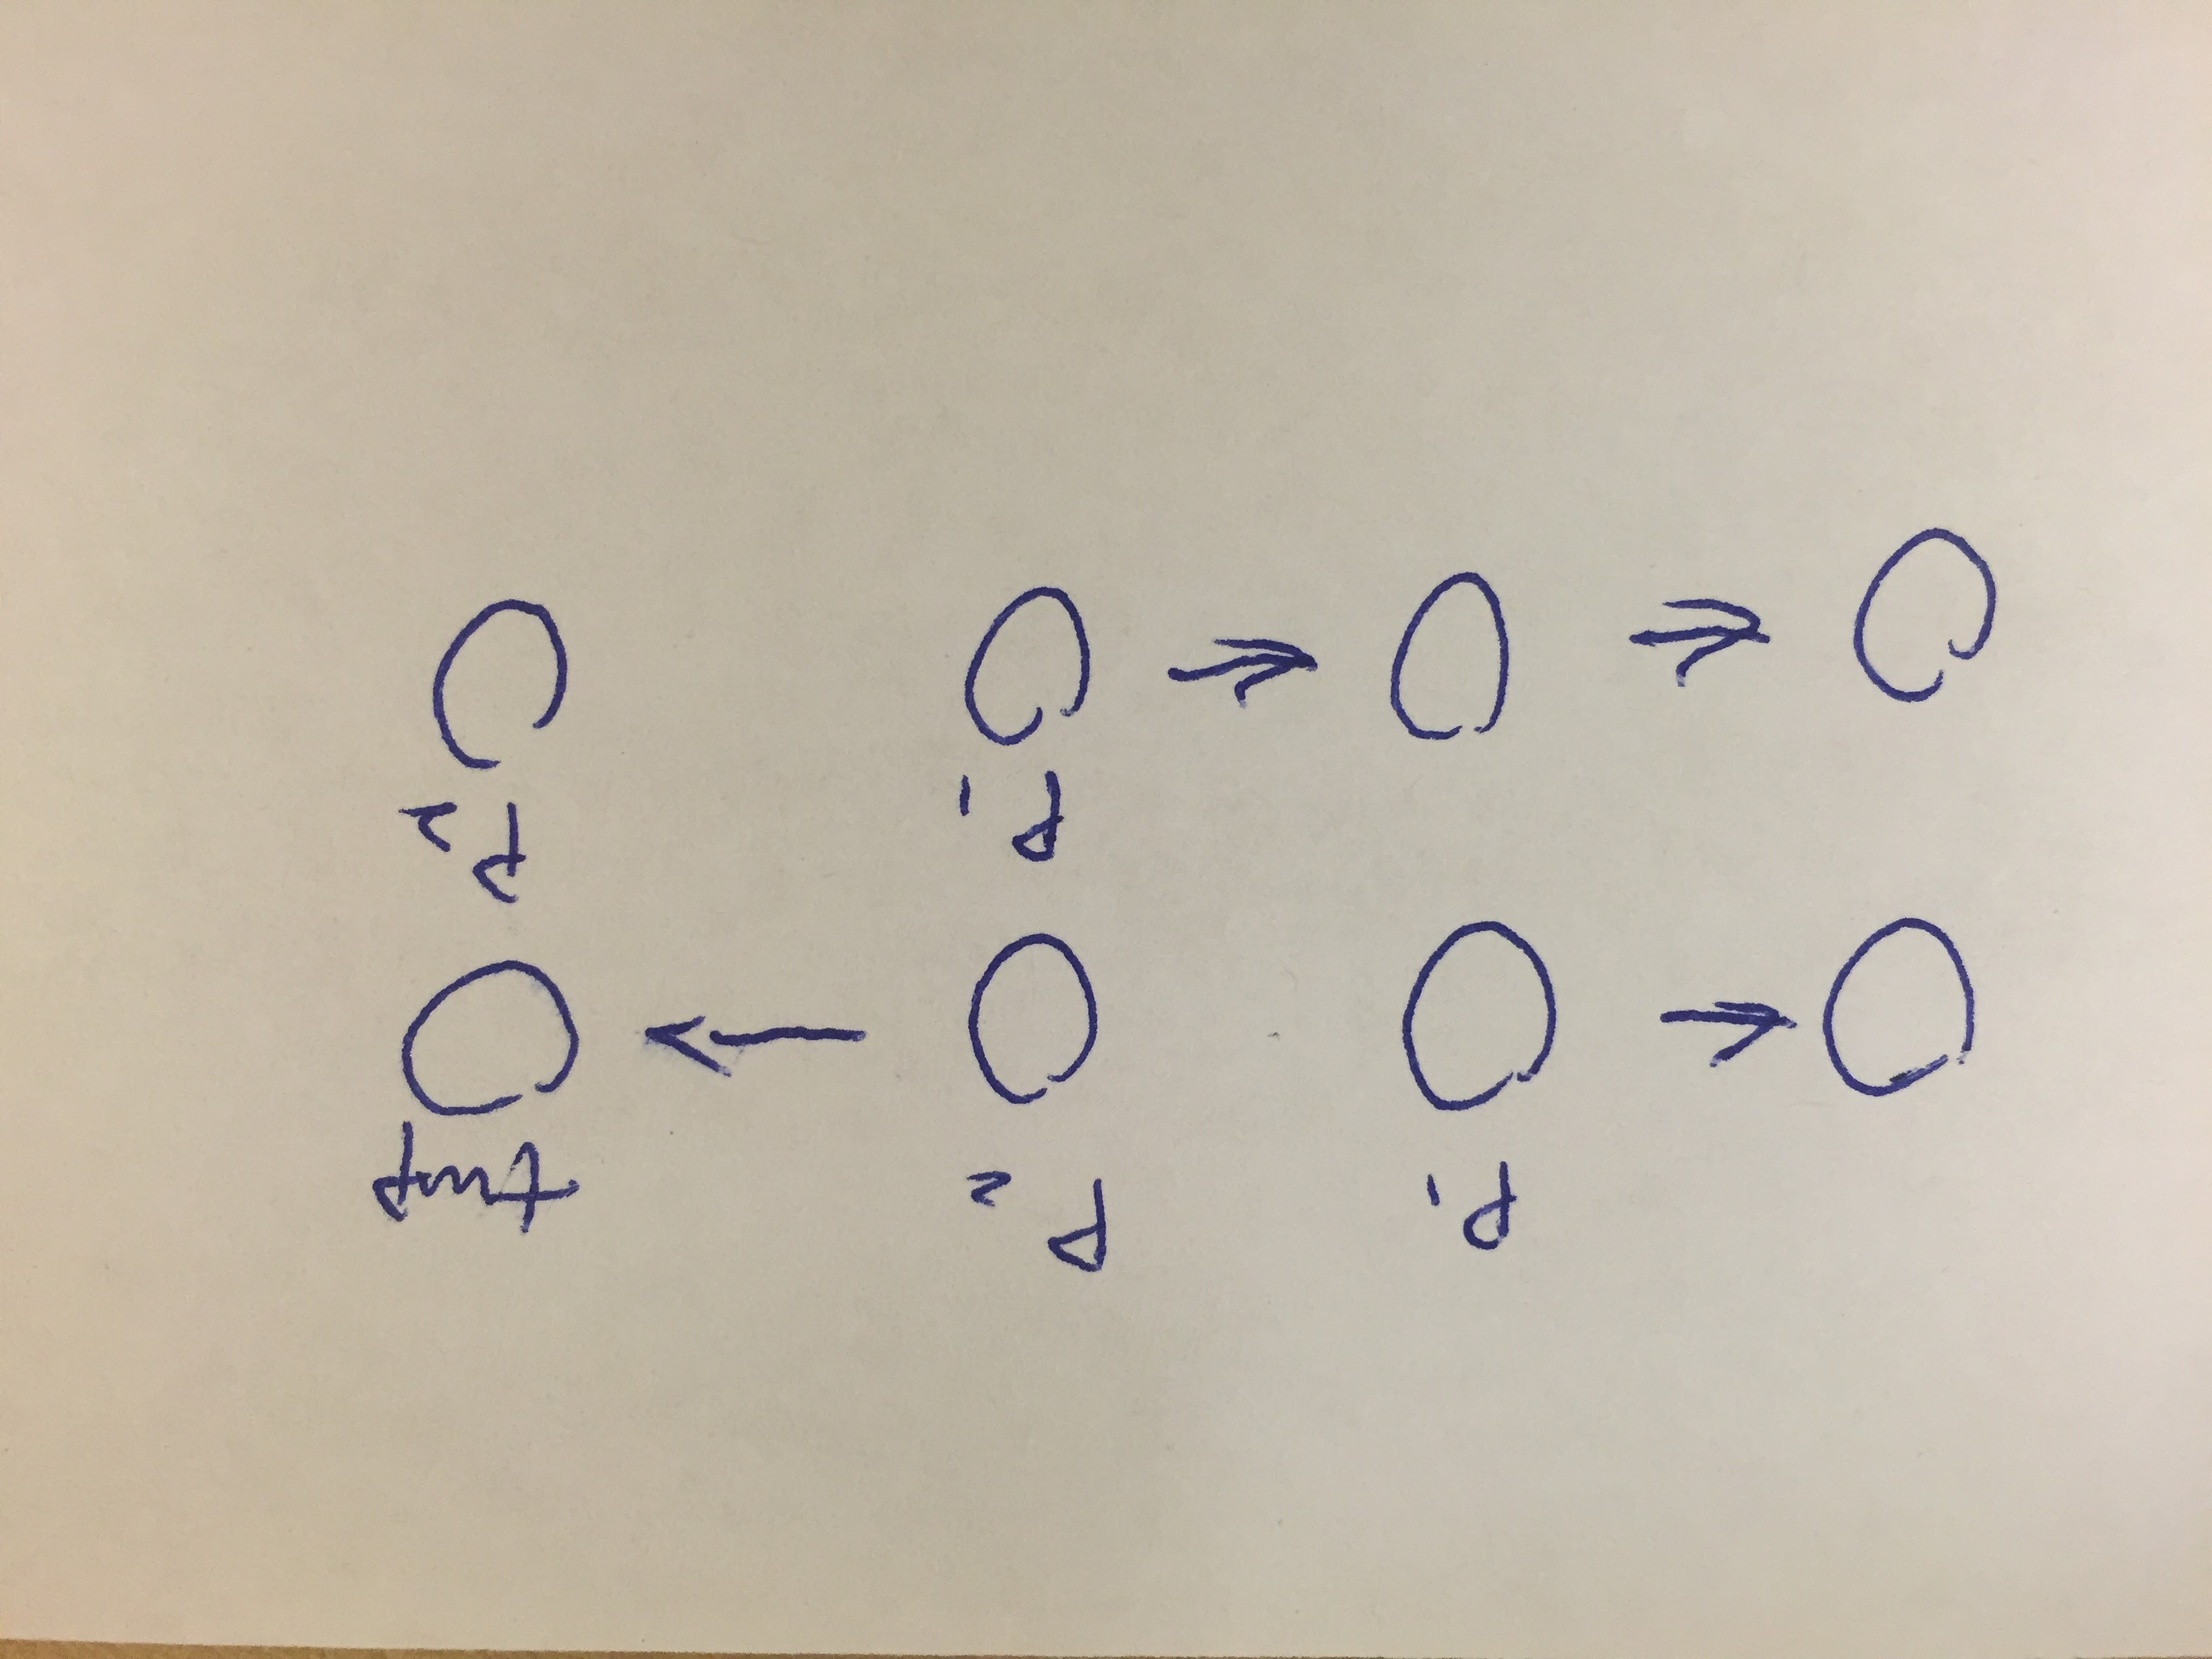 P1 P2 tmp
P1 P2